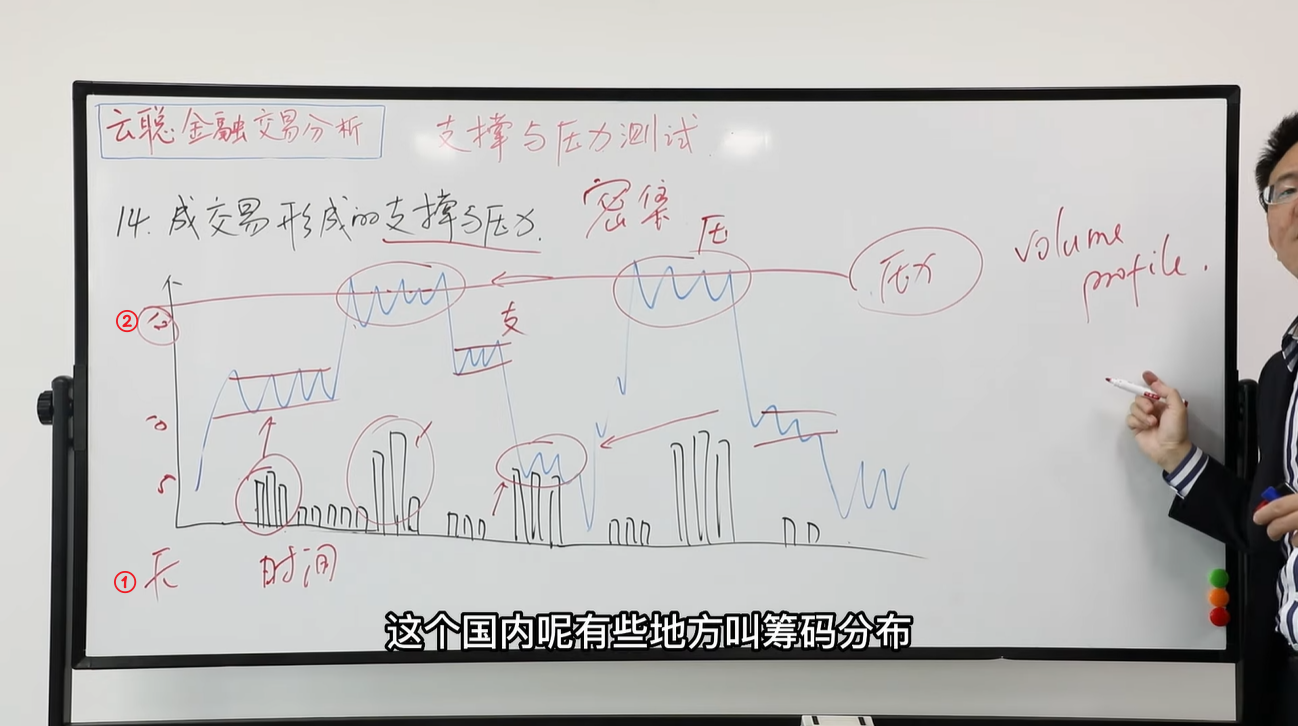 云聪金融交易分析
支撑与压力测试
14. 成交易形成的支撑与压力.
密集
压
压力
volume
profile.
支
②
5
① 长
时间
这个国内呢有些地方叫筹码分布